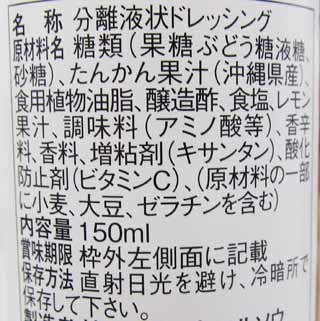 名 称 分離液状ドレッシング
原材料名 糖類(果糖ぶどう糖液糖、
砂糖)、たんかん果汁(沖縄県産)、
食用植物油脂、醸造酢、食塩、レモン
果汁、調味料(アミノ酸等)、香辛
料、香料、増粘剤(キサンタン)、酸化
防止剤(ビタミンC)、(原材料の一部
に小麦、大豆、ゼラチンを含む)
内容量 150ml
賞味期限 枠外左側面に記載
保存方法 直射日光を避け、冷暗所で
保存して下さい。